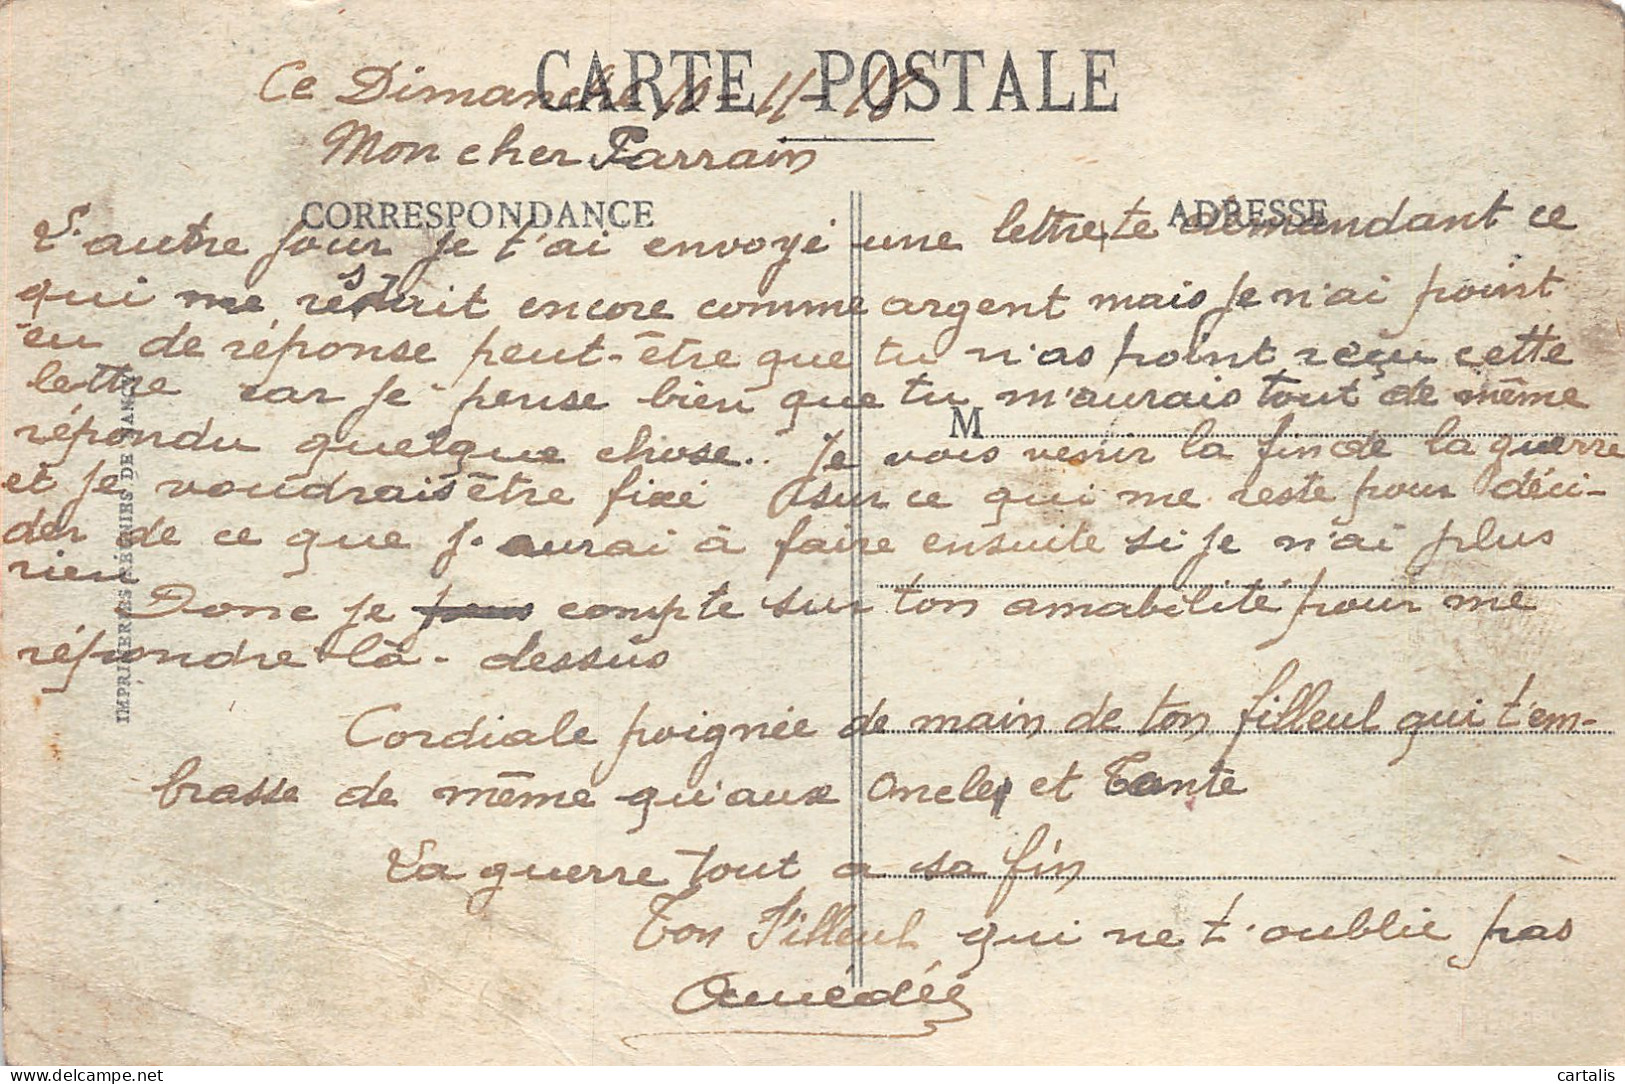 CARTE POSTALE
Ce Dimanche 10-11-18
Mon cher Parrain
CORRESPONDANCE
ADRESSE
L'autre jour je t'ai envoyé une lettre te demandant ce
qui me restait encore comme argent mais je n'ai point
eu de réponse peut-être que tu n'as point reçu cette
lettre car je pense bien que tu m'aurais tout de même
M
répondu quelque chose.. Je vois venir la fin de la guerre
et je voudrais être fixé sur ce qui me reste pour déci-
der de ce que j'aurai à faire ensuite si je n'ai plus
rien
Donc je compte sur ton amabilité pour me
répondre là-dessus
Cordiale poignée de main de ton filleul qui t'em-
brasse de même qu'aux oncle et Tante
La guerre tout a sa fin
Ton Filleul qui ne t'oublie pas
Amédée
IMPRIMERIES RÉUNIES DE NANCY
cartalis